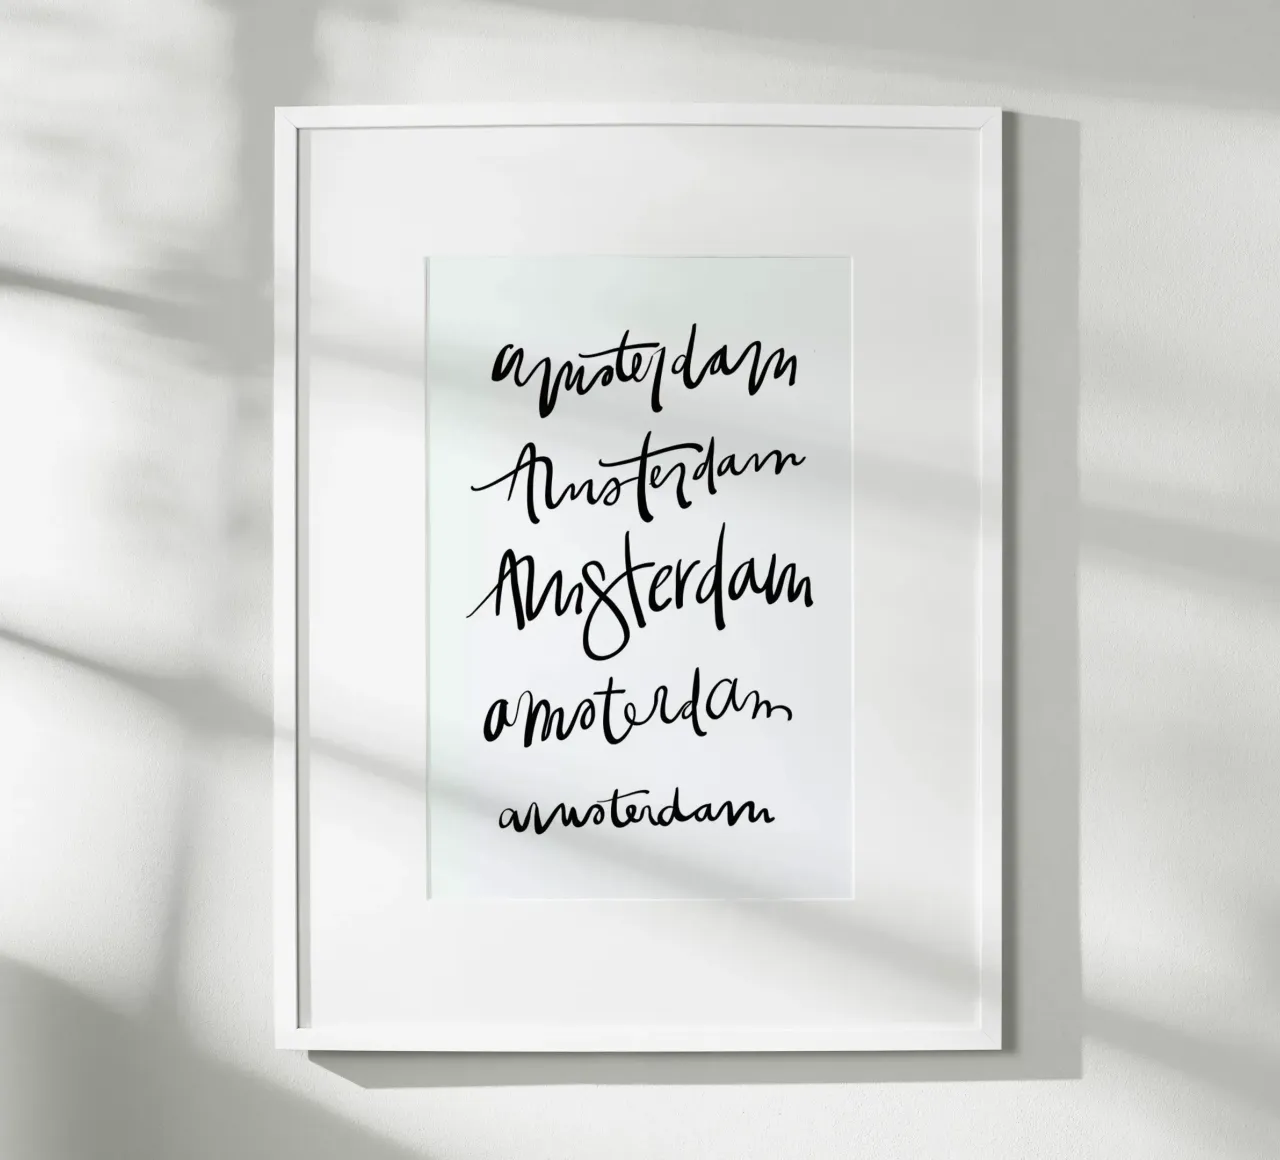 amsterdam
Amsterdam
Amsterdam
amsterdam
amsterdam